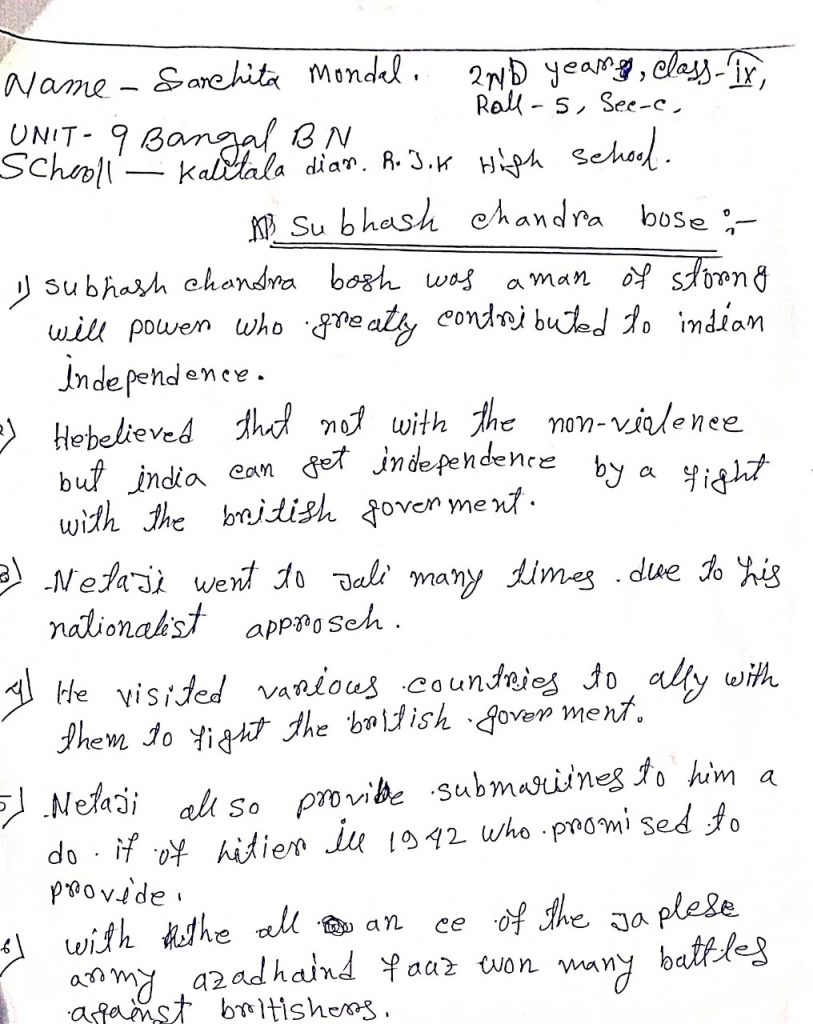 Name - Sanchita Mondal. 2ND years, class-ix,
Roll - 5, Sec-c.
UNIT - 9 Bangal BN
SChooll — Kalitala dian. R.J.K High school.
Subhash chandra bose :-
1) subhash chandra bosh was a man of storng
will power who greatly contributed to indian
independence.
2) Hebelieved that not with the non-vialence
but india can get independence by a fight
with the british goverment.
3) Netaji went to Jali many times. due to his
nationalist approsch.
4) He visited various countries to ally with
them to fight the british goverment.
5) Netaji all so provide submariines to him a
do. if of hitier in 1942 who promised to
provide.
6) with the all an ce of the Japlese
army azadhaind fauz won many battles
against britishers.